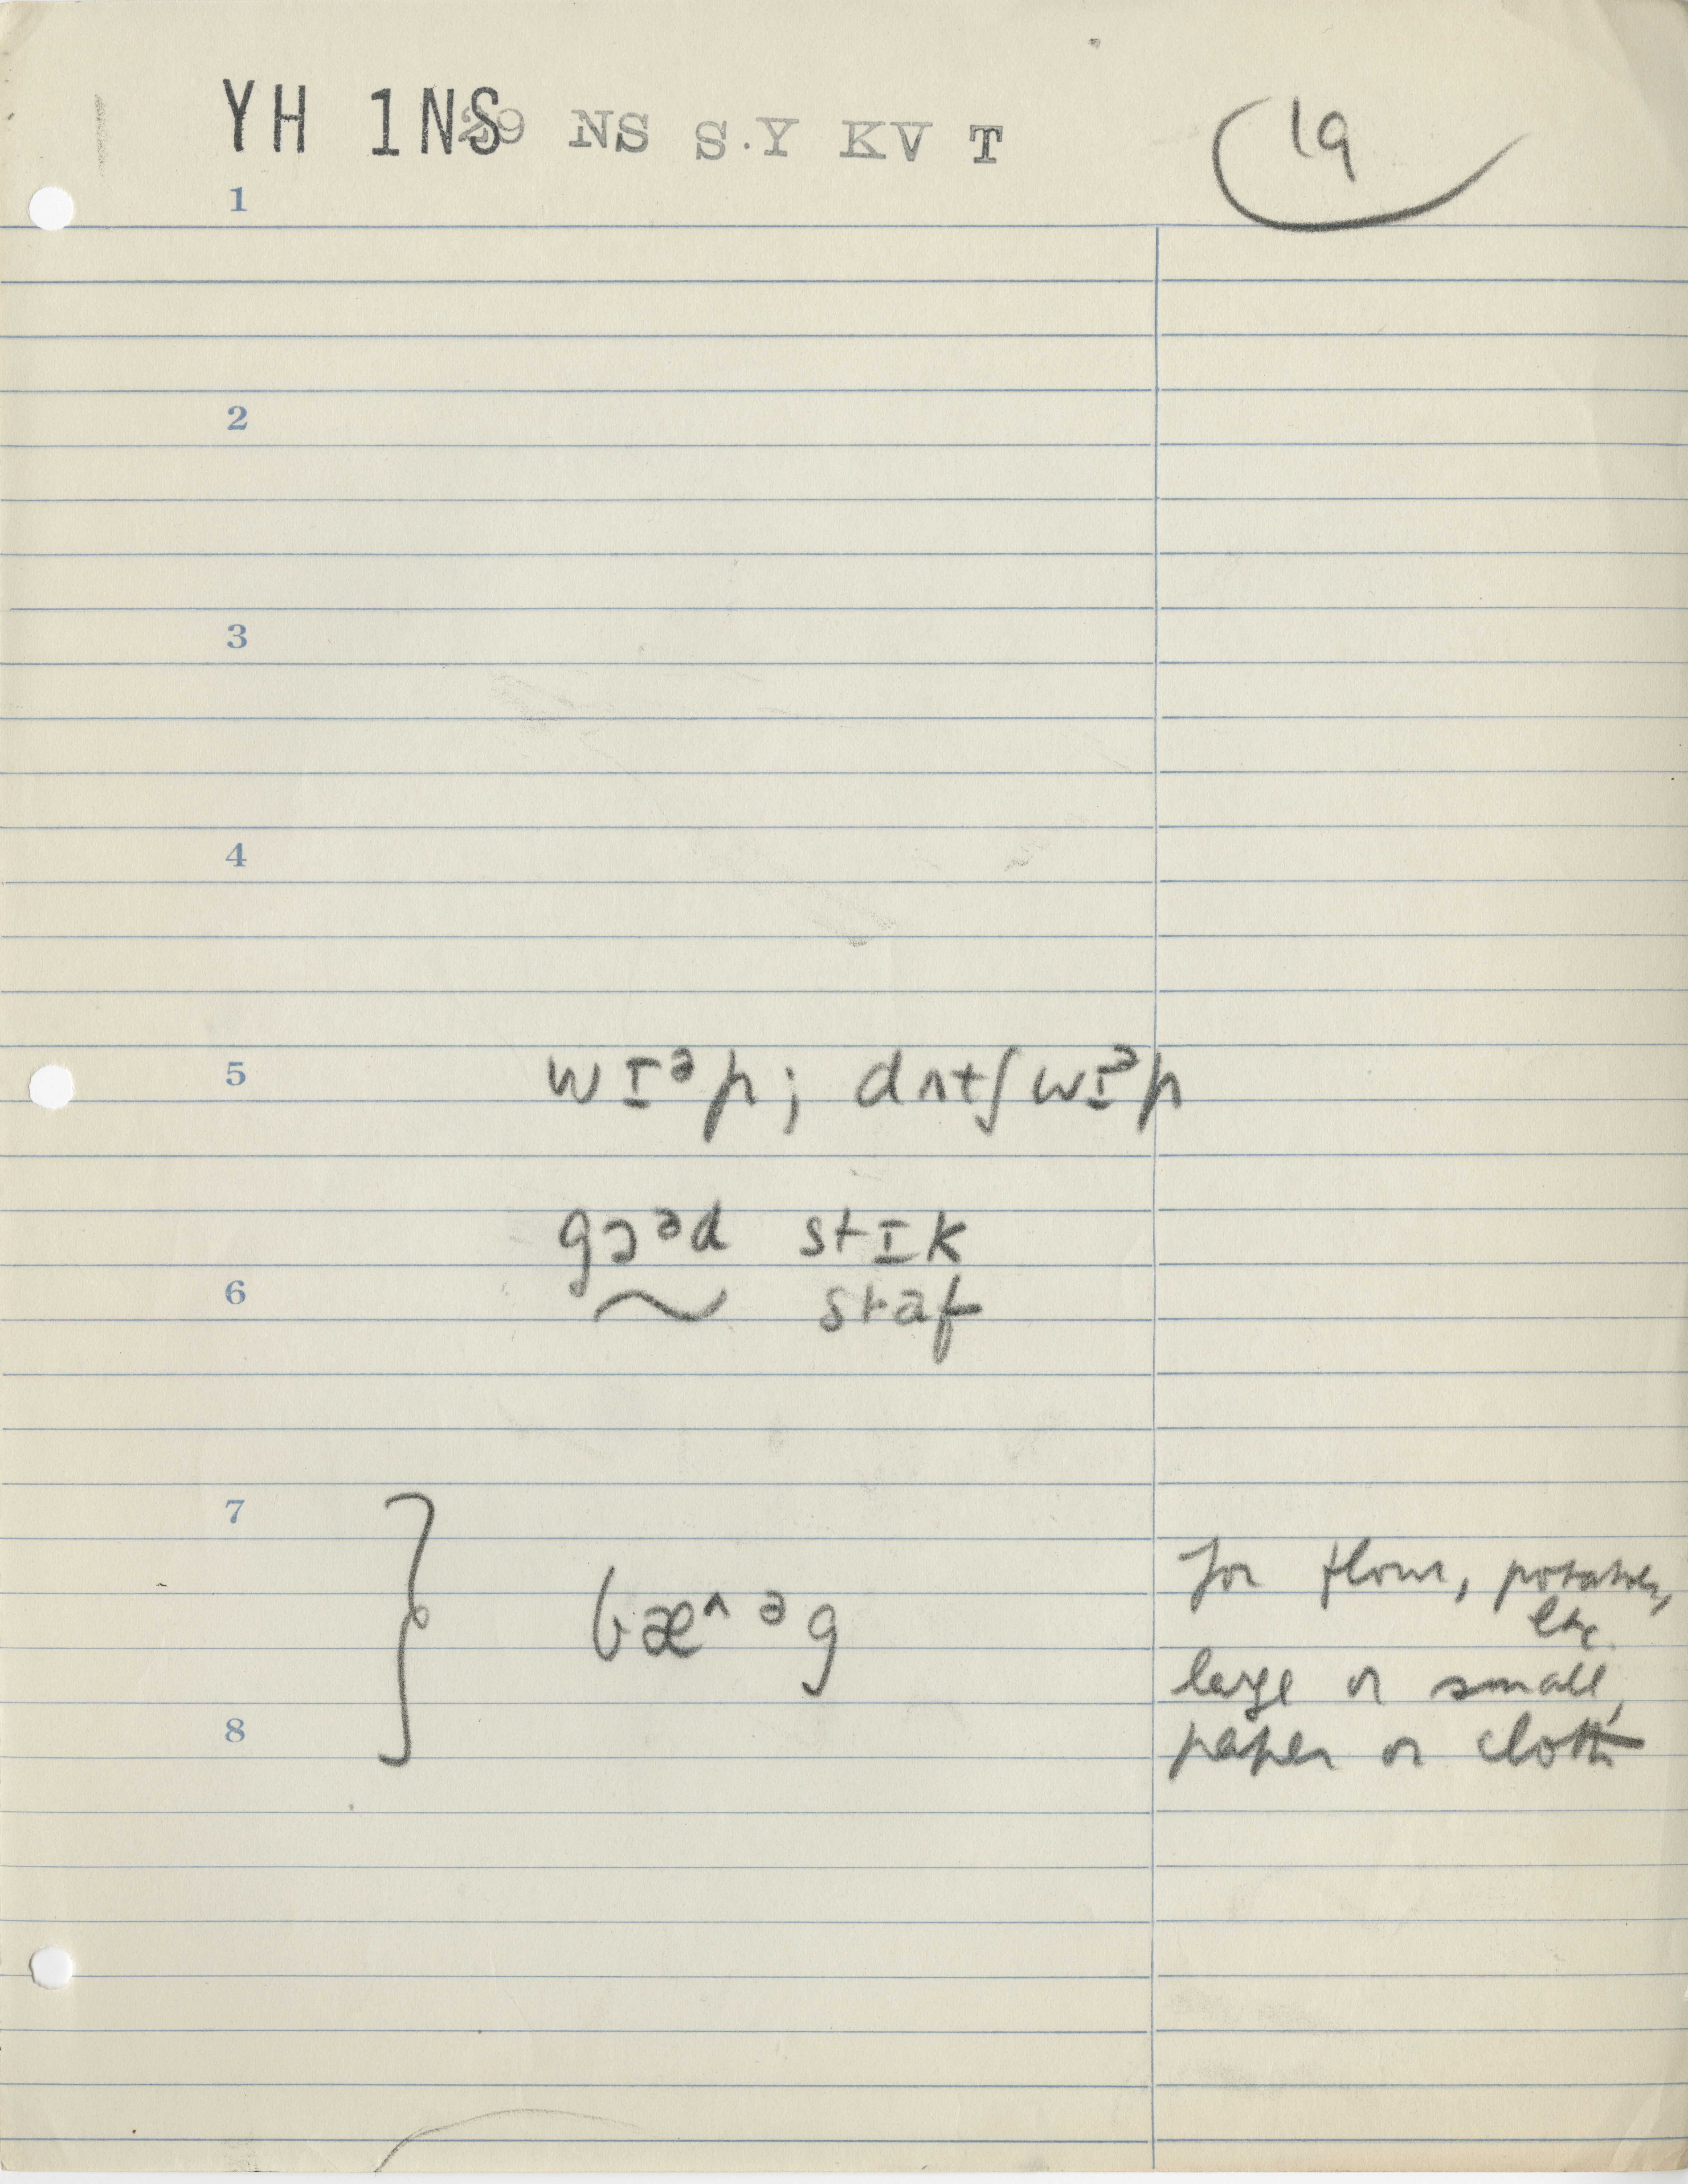 YH 1NS 29 NS S.Y KV T
19
1
2
3
4
5 wɪᵊp; dʌtʃ wɪᵊp
gɔᵊd stɪk
6 ~ staf
7
bæ^ ᵊg
for flour, potatoes,
etc.
large or small,
8 paper or cloth